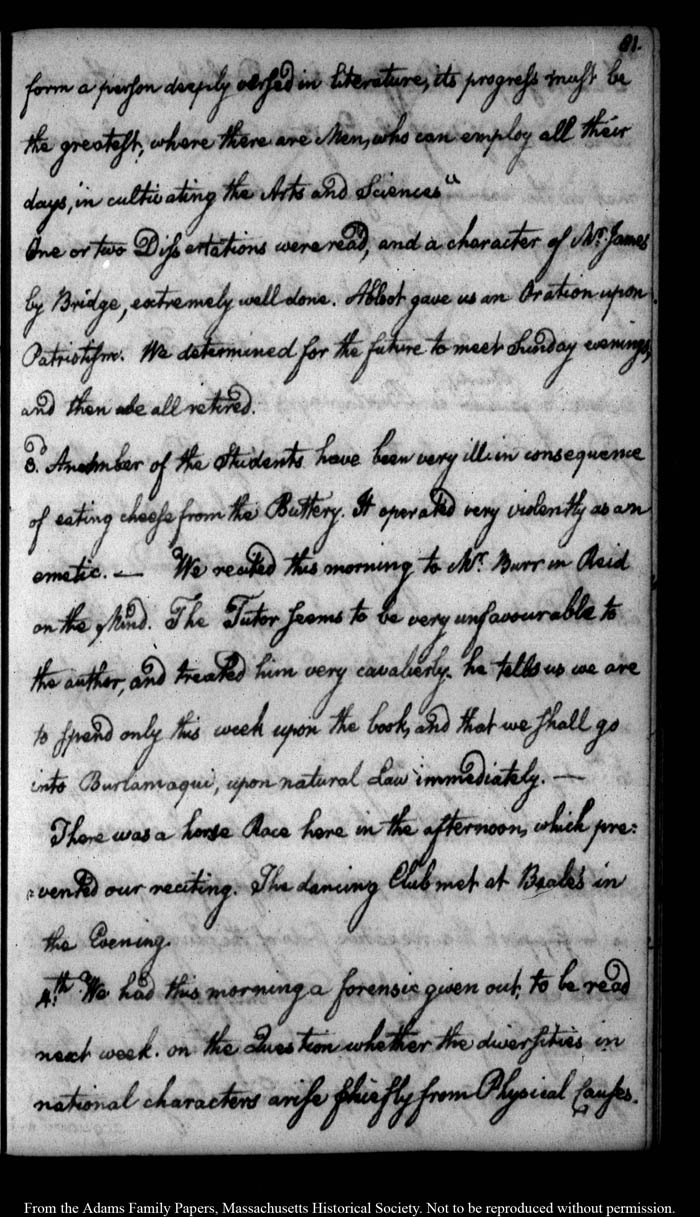 81.
form a person deeply versed in literature, its progress must be
the greatest, where there are Men, who can employ all their
days, in cultivating the Arts and Sciences"
One or two Dissertations were read, and a character of Mr. James
by Bridge, extremely well done. Abbot gave us an Oration upon
Patriotism. We determined for the future to meet Sunday evenings,
and then we all retired.
3d. A number of the Students have been very ill in consequence
of eating cheese from the Buttery. It operated very violently as an
emetic. — We recited this morning to Mr. Burr in Reid
on the Mind. The Tutor seems to be very unfavourable to
the author, and treated him very cavalierly. he tells us we are
to spend only this week upon the book, and that we shall go
into Burlamaqui, upon natural Law immediately. —
There was a horse Race here in the afternoon, which pre:
:vented our reciting. The dancing Club met at Beale's in
the Evening.
4.th We had this morning a forensic given out, to be read
next week. on the Question whether the diversities in
national characters arise chiefly from Physical causes.
From the Adams Family Papers, Massachusetts Historical Society. Not to be reproduced without permission.